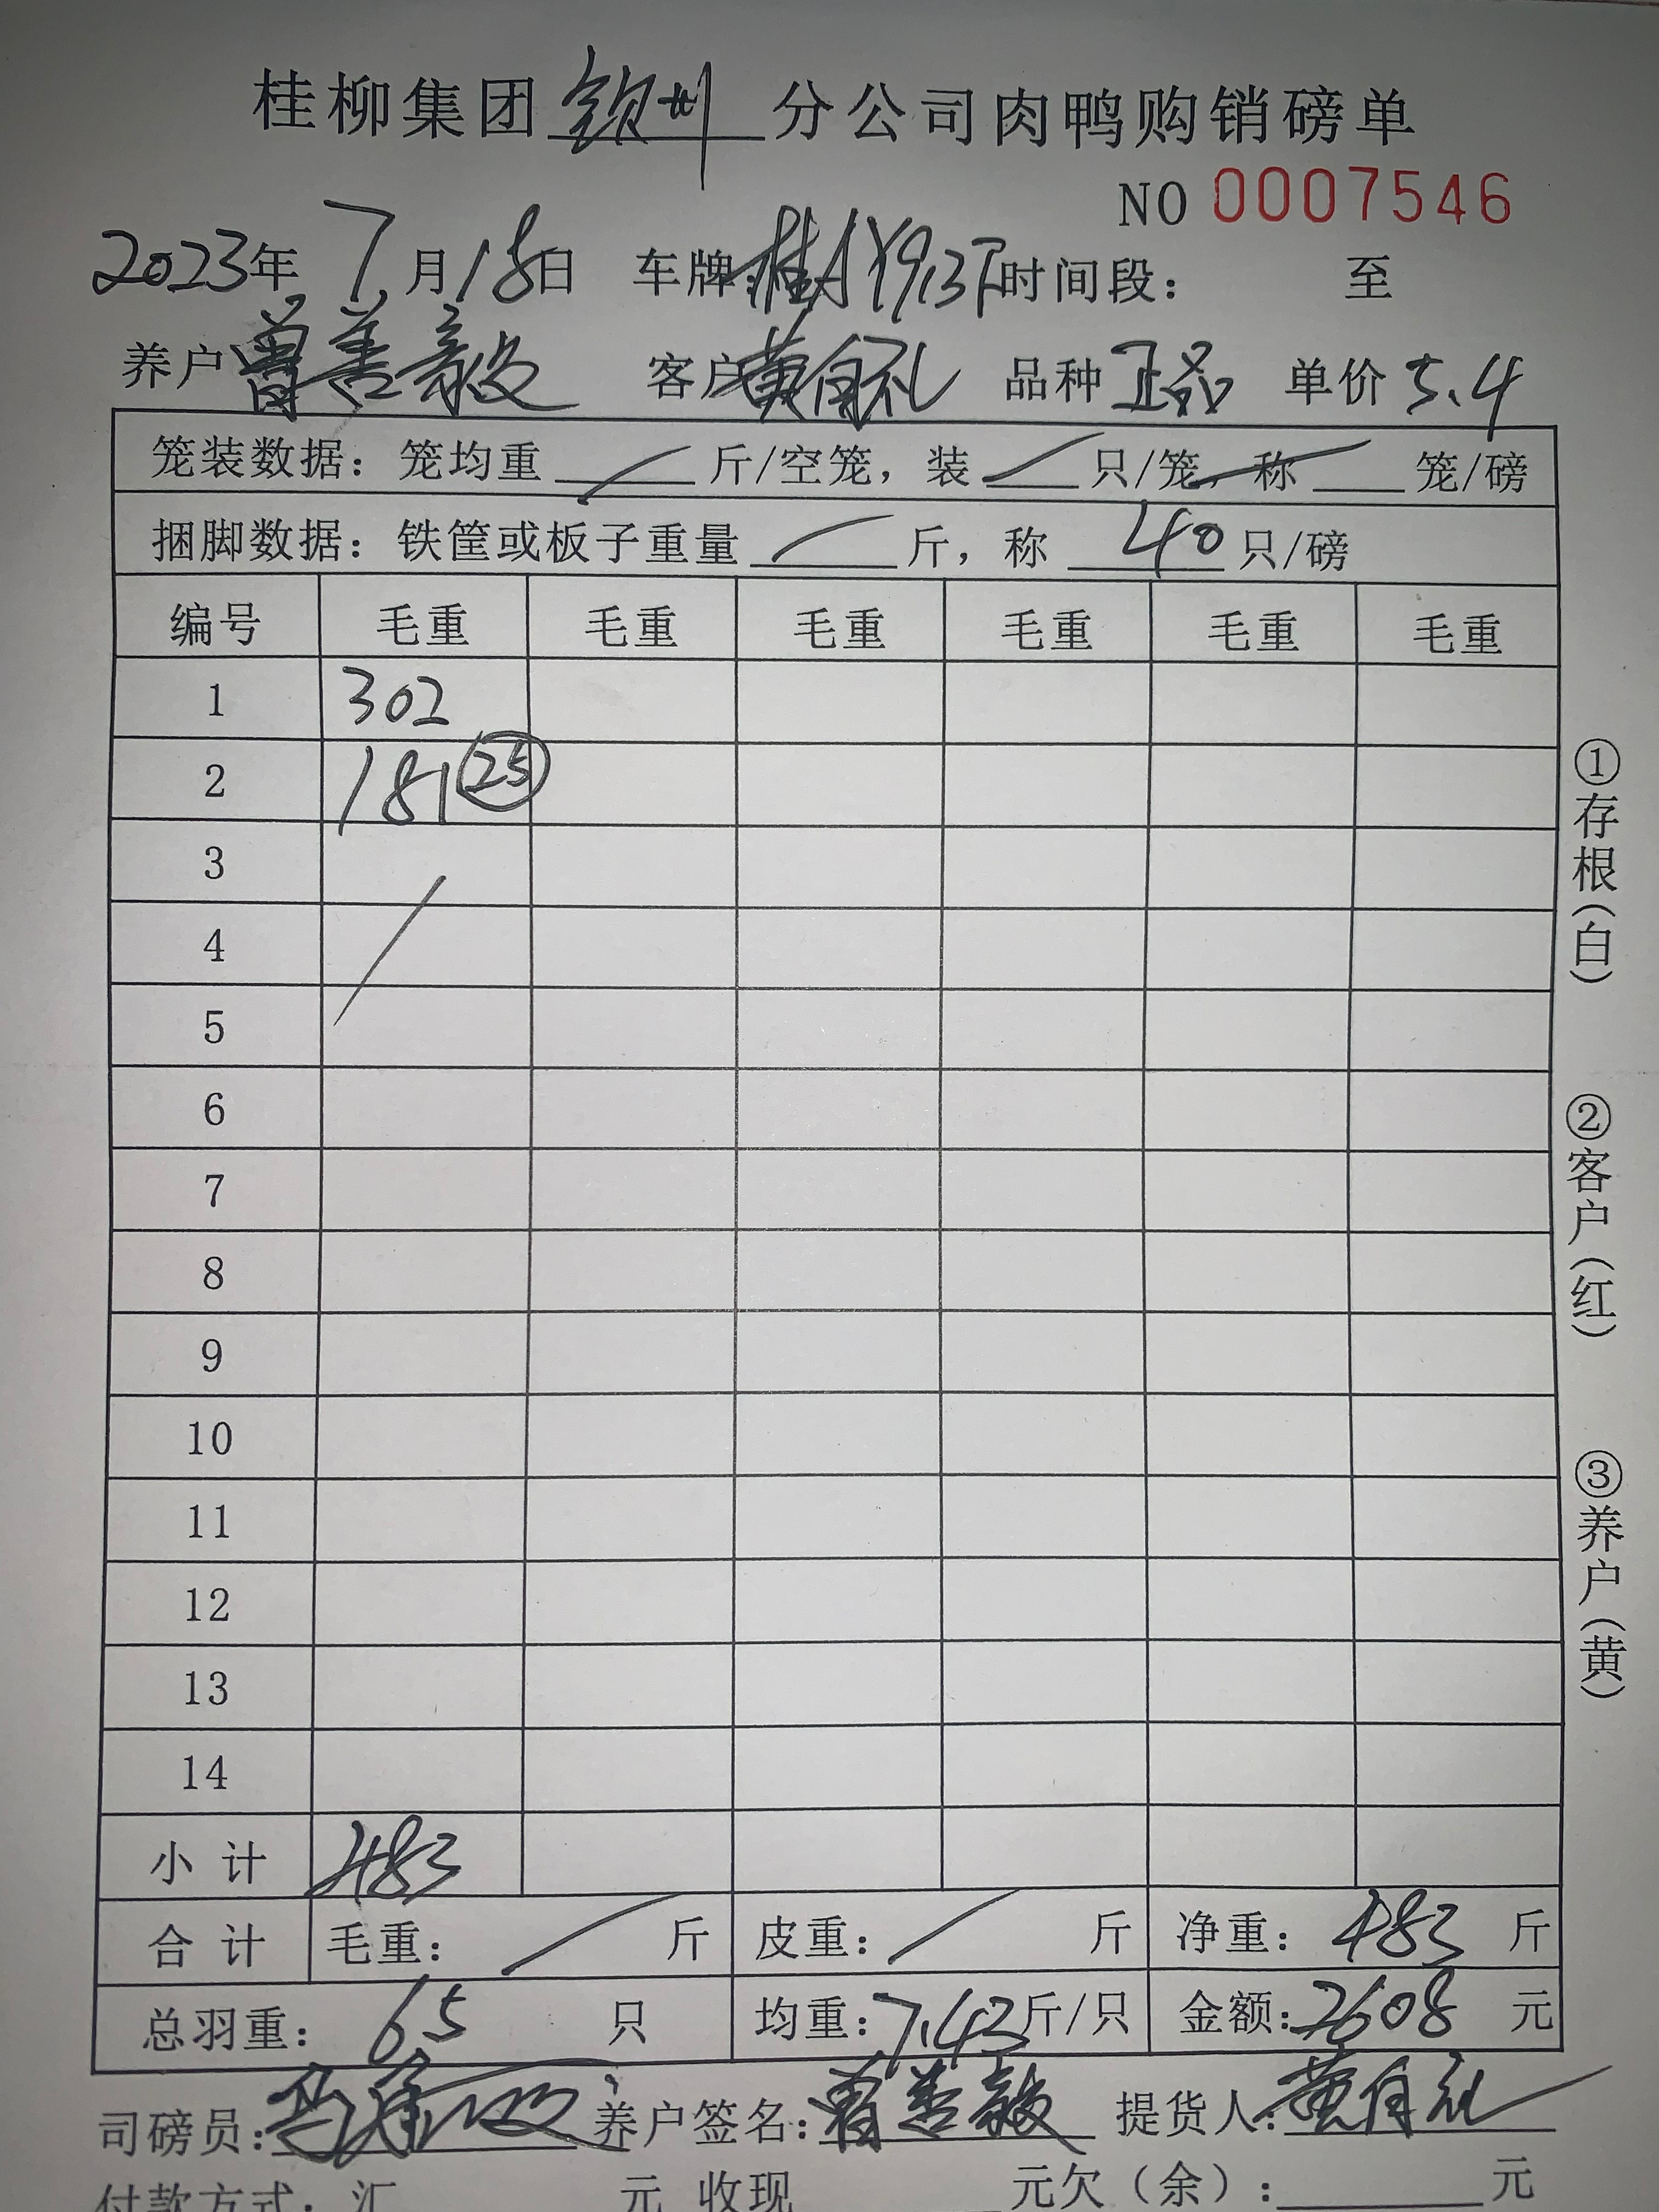 桂柳集团钦州分公司肉鸭购销磅单
NO 0007546
2023年7月18日 车牌: 时间段: 至
养户曾善毅 客户黄自礼 品种正品 单价5.4
笼装数据: 笼均重 斤/空笼, 装 只/笼, 称 笼/磅
捆脚数据: 铁筐或板子重量 斤, 称 40 只/磅
编号 毛重 毛重 毛重 毛重 毛重 毛重
1 302
2 181 25
3
4
5
6
7
8
9
10
11
12
13
14
小计 483
合计 毛重: 斤 皮重: 斤 净重: 483 斤
总羽重: 65 只 均重: 7.43斤/只 金额: 2608 元
司磅员: 养户签名: 曾善毅 提货人: 黄自礼
付款方式: 汇 元 收现 元欠(余): 元
①存根(白)
②客户(红)
③养户(黄)